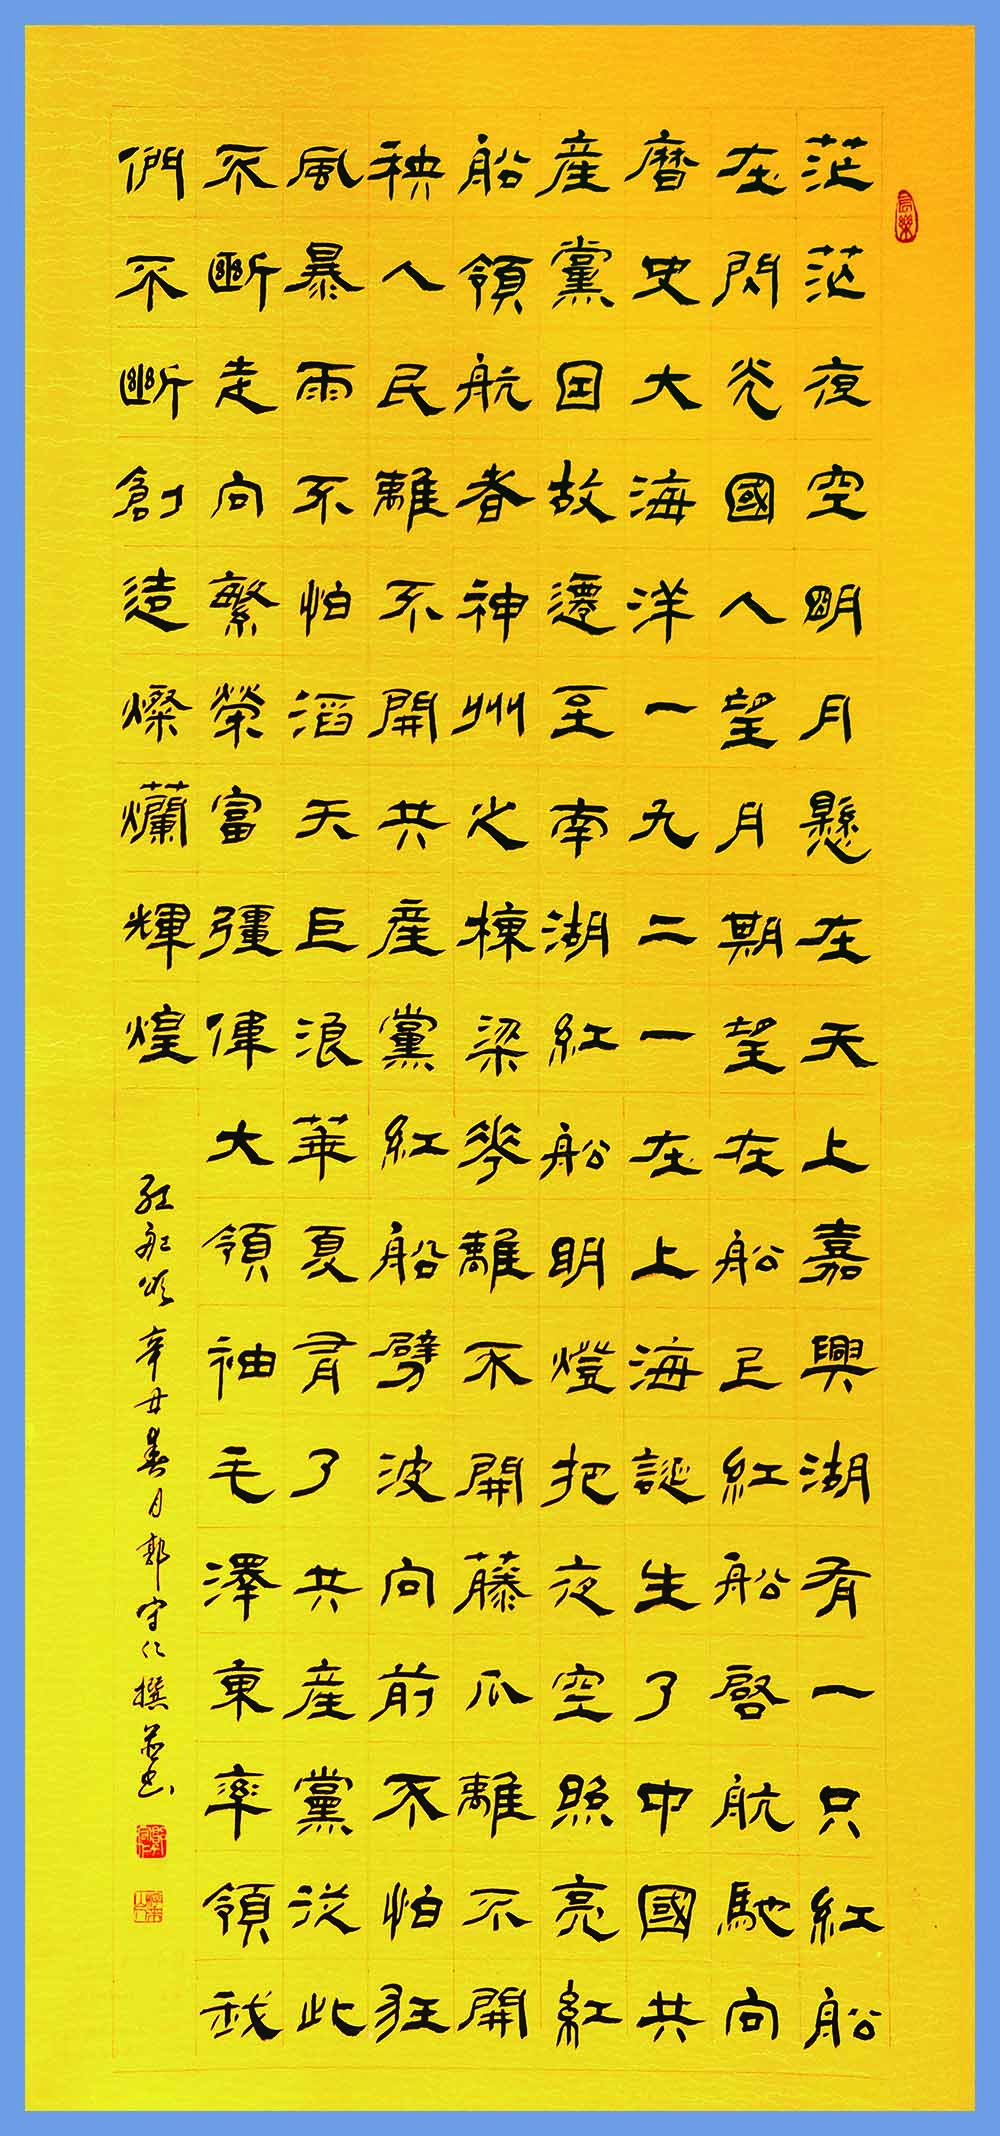 茫茫夜空明月懸在天上嘉興湖有一只紅船
在閃光國人望月期望在船上紅船啓航馳向
曆史大海洋一九二一在上海誕生了中國共
産黨因故遷至南湖紅船明燈把夜空照亮紅
船領航者神州之棟梁花離不開藤瓜離不開
秧人民離不開共産黨紅船劈波向前不怕狂
風暴雨不怕滔天巨浪華夏有了共産黨從此
不斷走向繁榮富彊偉大領袖毛澤東率領我
們不斷創造燦爛輝煌
紅船頌 辛丑春月郭守仁撰並書